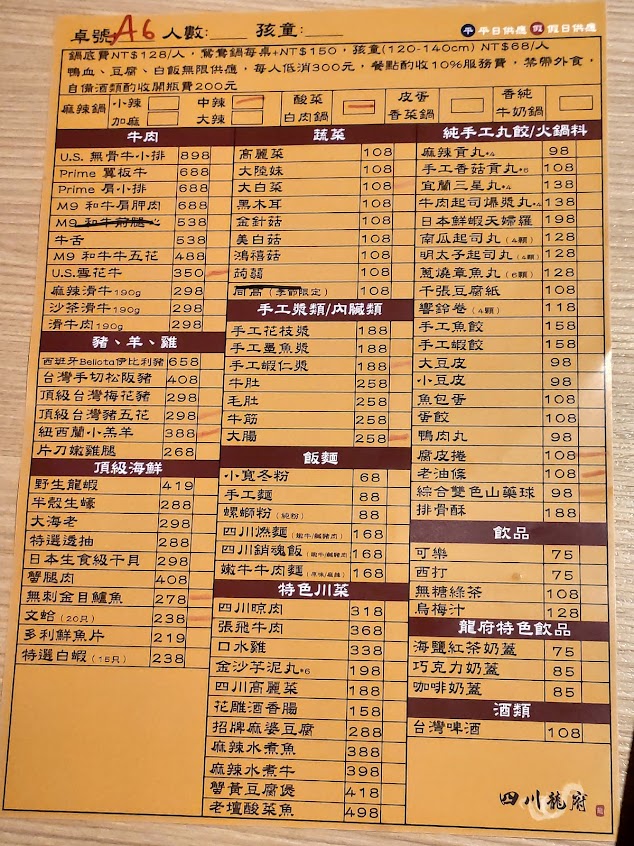 卓號A6 人數:___ 孩童:___ 平 平日供應 假 假日供應
鍋底費NT$128/人，鴛鴦鍋每桌+NT$150，孩童(120-140cm) NT$68/人
鴨血、豆腐、白飯無限供應，每人低消300元，餐點酌收10%服務費，禁帶外食，
自備酒類酌收開瓶費200元
麻辣鍋 小辣 中辣 加麻 大辣
酸菜白肉鍋
皮蛋香菜鍋
香純牛奶鍋
牛肉
U.S. 無骨牛小排 898
Prime 翼板牛 688
Prime 肩小排 688
M9 和牛肩胛肉 688
M9 和牛前腿心 538
牛舌 538
M9 和牛牛五花 488
U.S.雪花牛 350
麻辣滑牛190g 298
沙茶滑牛190g 298
滑牛肉190g 298
豬、羊、雞
西班牙Bellota伊比利豬 658
台灣手切松阪豬 408
頂級台灣梅花豬 298
頂級台灣豬五花 298
紐西蘭小羔羊 388
片刀嫩雞腿 268
頂級海鮮
野生龍蝦 419
半殼生蠔 288
大海老 298
特選透抽 288
日本生食級干貝 298
蟹腿肉 408
無刺金目鱸魚 278
文蛤(20只) 238
多利鮮魚片 219
特選白蝦(15只) 238
蔬菜
高麗菜 108
大陸妹 108
大白菜 108
黑木耳 108
金針菇 108
美白菇 108
鴻禧菇 108
蒟蒻 108
茼蒿(季節限定) 108
手工漿類/內臟類
手工花枝漿 188
手工墨魚漿 188
手工蝦仁漿 188
牛肚 258
毛肚 258
牛筋 258
大腸 258
飯麵
小寬冬粉 68
手工麵 88
螺螄粉(純粉) 88
四川燃麵(嫩牛/鹹豬肉) 168
四川銷魂飯(嫩牛/鹹豬肉) 168
嫩牛牛肉麵(原味/麻辣) 168
特色川菜
四川晾肉 318
張飛牛肉 368
口水雞 338
金沙芋泥丸*6 198
四川高麗菜 188
花雕酒香腸 158
招牌麻婆豆腐 288
麻辣水煮魚 388
麻辣水煮牛 398
蟹黃豆腐煲 418
老壇酸菜魚 498
純手工丸餃/火鍋料
麻辣貢丸*4 98
手工香菇貢丸*6 108
宜蘭三星丸*4 138
牛肉起司爆漿丸*4 138
日本鮮蝦天婦羅 198
南瓜起司丸(4顆) 128
明太子起司丸(4顆) 128
蔥燒章魚丸(6顆) 128
千張豆腐紙 108
響鈴卷(4顆) 118
手工魚餃 158
手工蝦餃 158
大豆皮 98
小豆皮 98
魚包蛋 108
蛋餃 108
鴨肉丸 98
腐皮捲 108
老油條 108
綜合雙色山藥球 98
排骨酥 188
飲品
可樂 75
西打 75
無糖綠茶 108
烏梅汁 128
龍府特色飲品
海鹽紅茶奶蓋 75
巧克力奶蓋 85
咖啡奶蓋 85
酒類
台灣啤酒 108
四川龍府